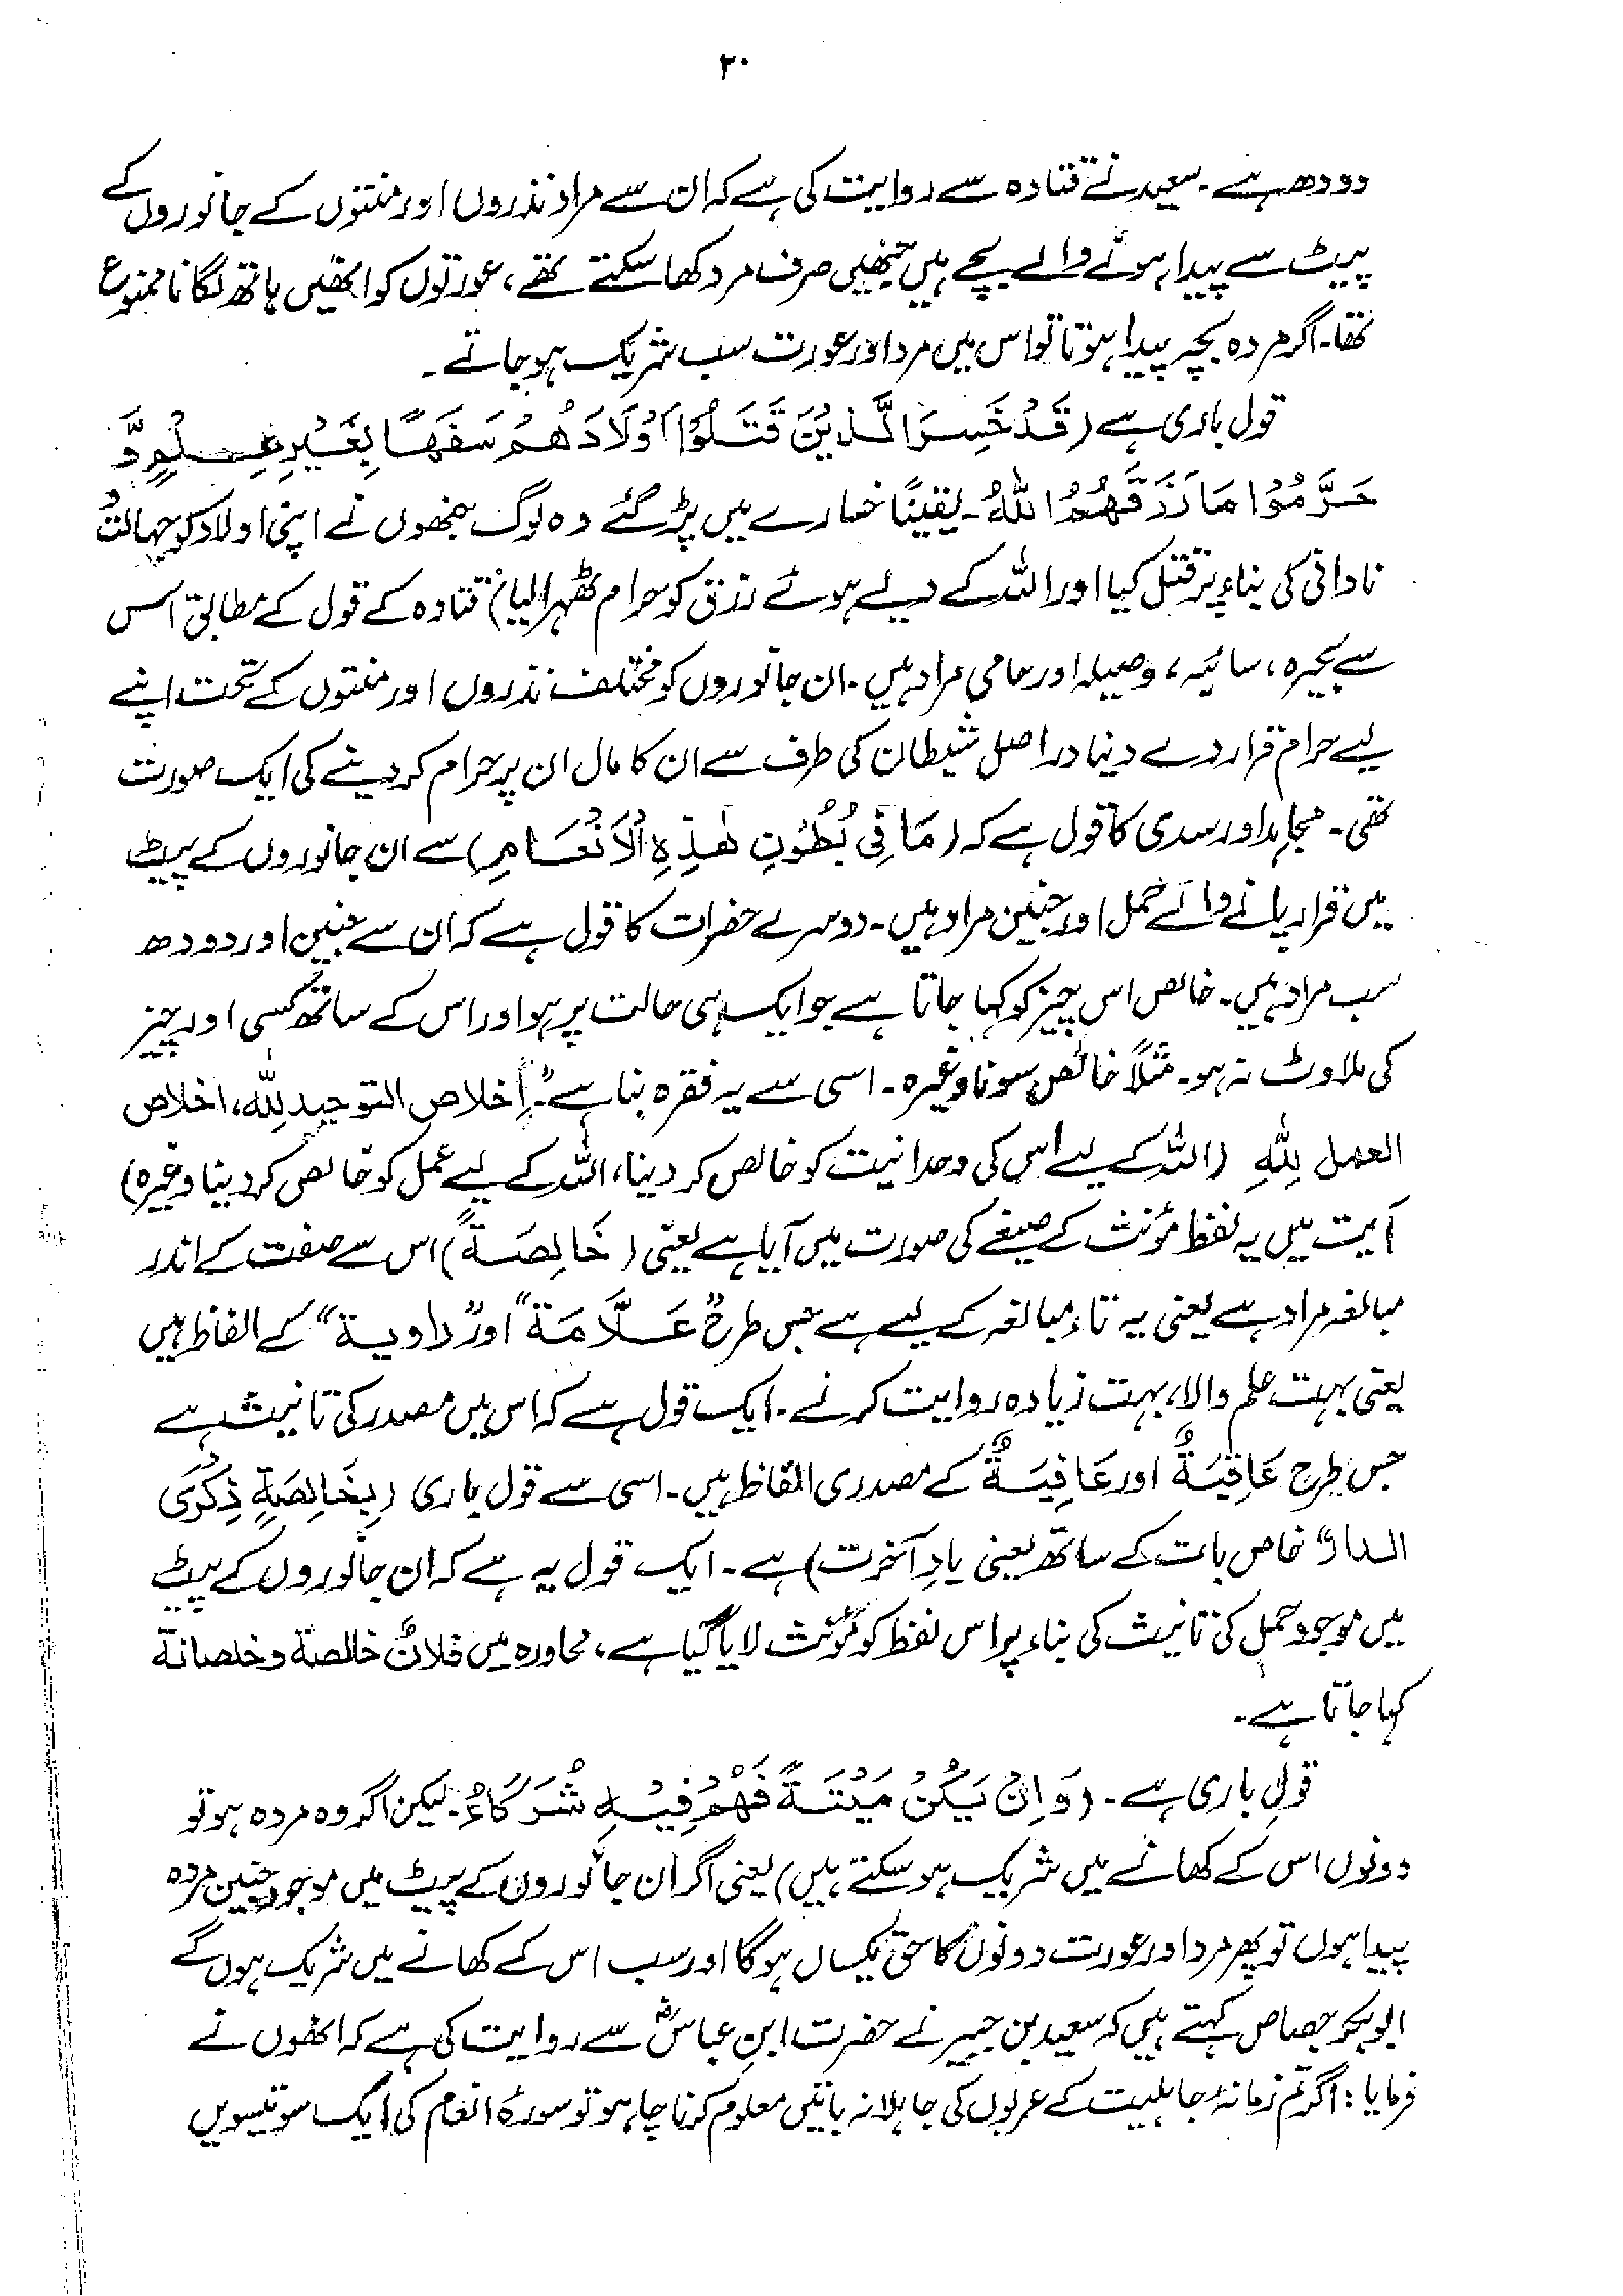 ۳۰
دودھ ہے۔ سعید نے قتادہ سے روایت کی ہے کہ ان سے مراد نذروں اور منتوں کے جانوروں کے
پیٹ سے پیدا ہونے والے بچے ہیں جنھیں صرف مرد کھا سکتے تھے، عورتوں کو انھیں ہاتھ لگانا ممنوع
تھا۔ اگر مردہ بچہ پیدا ہوتا تو اس میں مرد اور عورت سب شریک ہو جاتے۔
قول باری ہے (قَدْ خَسِرَ الَّذِیْنَ قَتَلُوْا اَوْلَادَهُمْ سَفَهًا بِغَیْرِ عِلْمٍ وَّ
حَرَّمُوْا مَا رَزَقَهُمُ اللّٰهُ۔ یقیناً خسارے میں پڑ گئے وہ لوگ جنھوں نے اپنی اولاد کو جہالت و
نادانی کی بناء پر قتل کیا اور اللہ کے دیے ہوئے رزق کو حرام ٹھہرا لیا) قتادہ کے قول کے مطابق اس
سے بحیرہ، سائبہ، وصیلہ اور حامی مراد ہیں۔ ان جانوروں کو مختلف نذروں اور منتوں کے تحت اپنے
لیے حرام قرار دے دینا دراصل شیطان کی طرف سے ان کا مال ان پر حرام کر دینے کی ایک صورت
تھی۔ مجاہد اور سدی کا قول ہے کہ (مَا فِیْ بُطُوْنِ هٰذِهِ الْاَنْعَامِ) سے ان جانوروں کے پیٹ
میں قرار پانے والے حمل اور جنین مراد ہیں۔ دوسرے حضرات کا قول ہے کہ ان سے جنین اور دودھ
سب مراد ہیں۔ خالص اس چیز کو کہا جاتا ہے جو ایک ہی حالت پر ہو اور اس کے ساتھ کسی اور چیز
کی ملاوٹ نہ ہو۔ مثلاً خالص سونا وغیرہ۔ اسی سے یہ فقرہ بنا ہے "اِخلاص التوحید لِلّٰہ، اخلاص
العمل لِلّٰهِ (اللہ کے لیے اس کی وحدانیت کو خالص کر دینا، اللہ کے لیے عمل کو خالص کر دینا وغیرہ)
آیت میں یہ لفظ مؤنث کے صیغے کی صورت میں آیا ہے یعنی (خَالِصَةً) اس سے صفت کے اندر
مبالغہ مراد ہے یعنی یہ تاء مبالغہ کے لیے ہے جس طرح "عَلَّامَة" اور "راویة" کے الفاظ ہیں
یعنی بہت علم والا، بہت زیادہ روایت کرنے۔ ایک قول ہے کہ اس میں مصدر کی تانیث ہے
جس طرح عَاقِبَةٌ اور عَافِیَةٌ کے مصدری الفاظ ہیں۔ اسی سے قول باری (بِخَالِصَةٍ ذِکْرَی
الدار" خاص بات کے ساتھ یعنی یادِ آخرت) ہے۔ ایک قول یہ ہے کہ ان جانوروں کے پیٹ
میں موجود حمل کی تانیث کی بناء پر اس لفظ کو مؤنث لایا گیا ہے، محاورہ میں فلانٌ خالصة وخلصانة
کہا جاتا ہے۔
قولِ باری ہے۔ (وَاِنْ یَکُنْ مَیْتَةً فَهُمْ فِیْهِ شُرَکَاءُ۔ لیکن اگر وہ مردہ ہو تو
دونوں اس کے کھانے میں شریک ہو سکتے ہیں) یعنی اگر ان جانوروں کے پیٹ میں موجود جنین مردہ
پیدا ہوں تو پھر مرد اور عورت دونوں کا حق یکساں ہوگا اور سب اس کے کھانے میں شریک ہوں گے
ابوبکر جصاص کہتے ہیں کہ سعید بن جبیر نے حضرت ابنِ عباسؓ سے روایت کی ہے کہ انھوں نے
فرمایا: اگر تم زمانۂ جاہلیت کے عربوں کی جاہلانہ باتیں معلوم کرنا چاہو تو سورۂ انعام کی ایک سو تیسویں